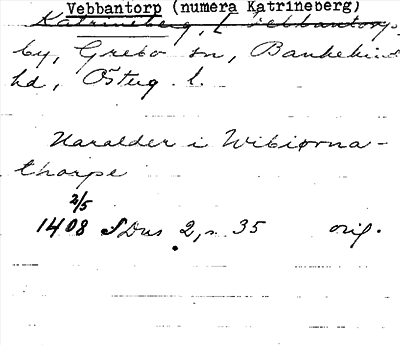 Vebbantorp (numera Katrineberg)
Katrineberg, l. Vebbantorp,
by, Grebo sn, Bankekinds
hd, Österg. l.
Haralder i Wibiorna-
thorpe
2/5
1408 SDns 2, s. 35 orig.